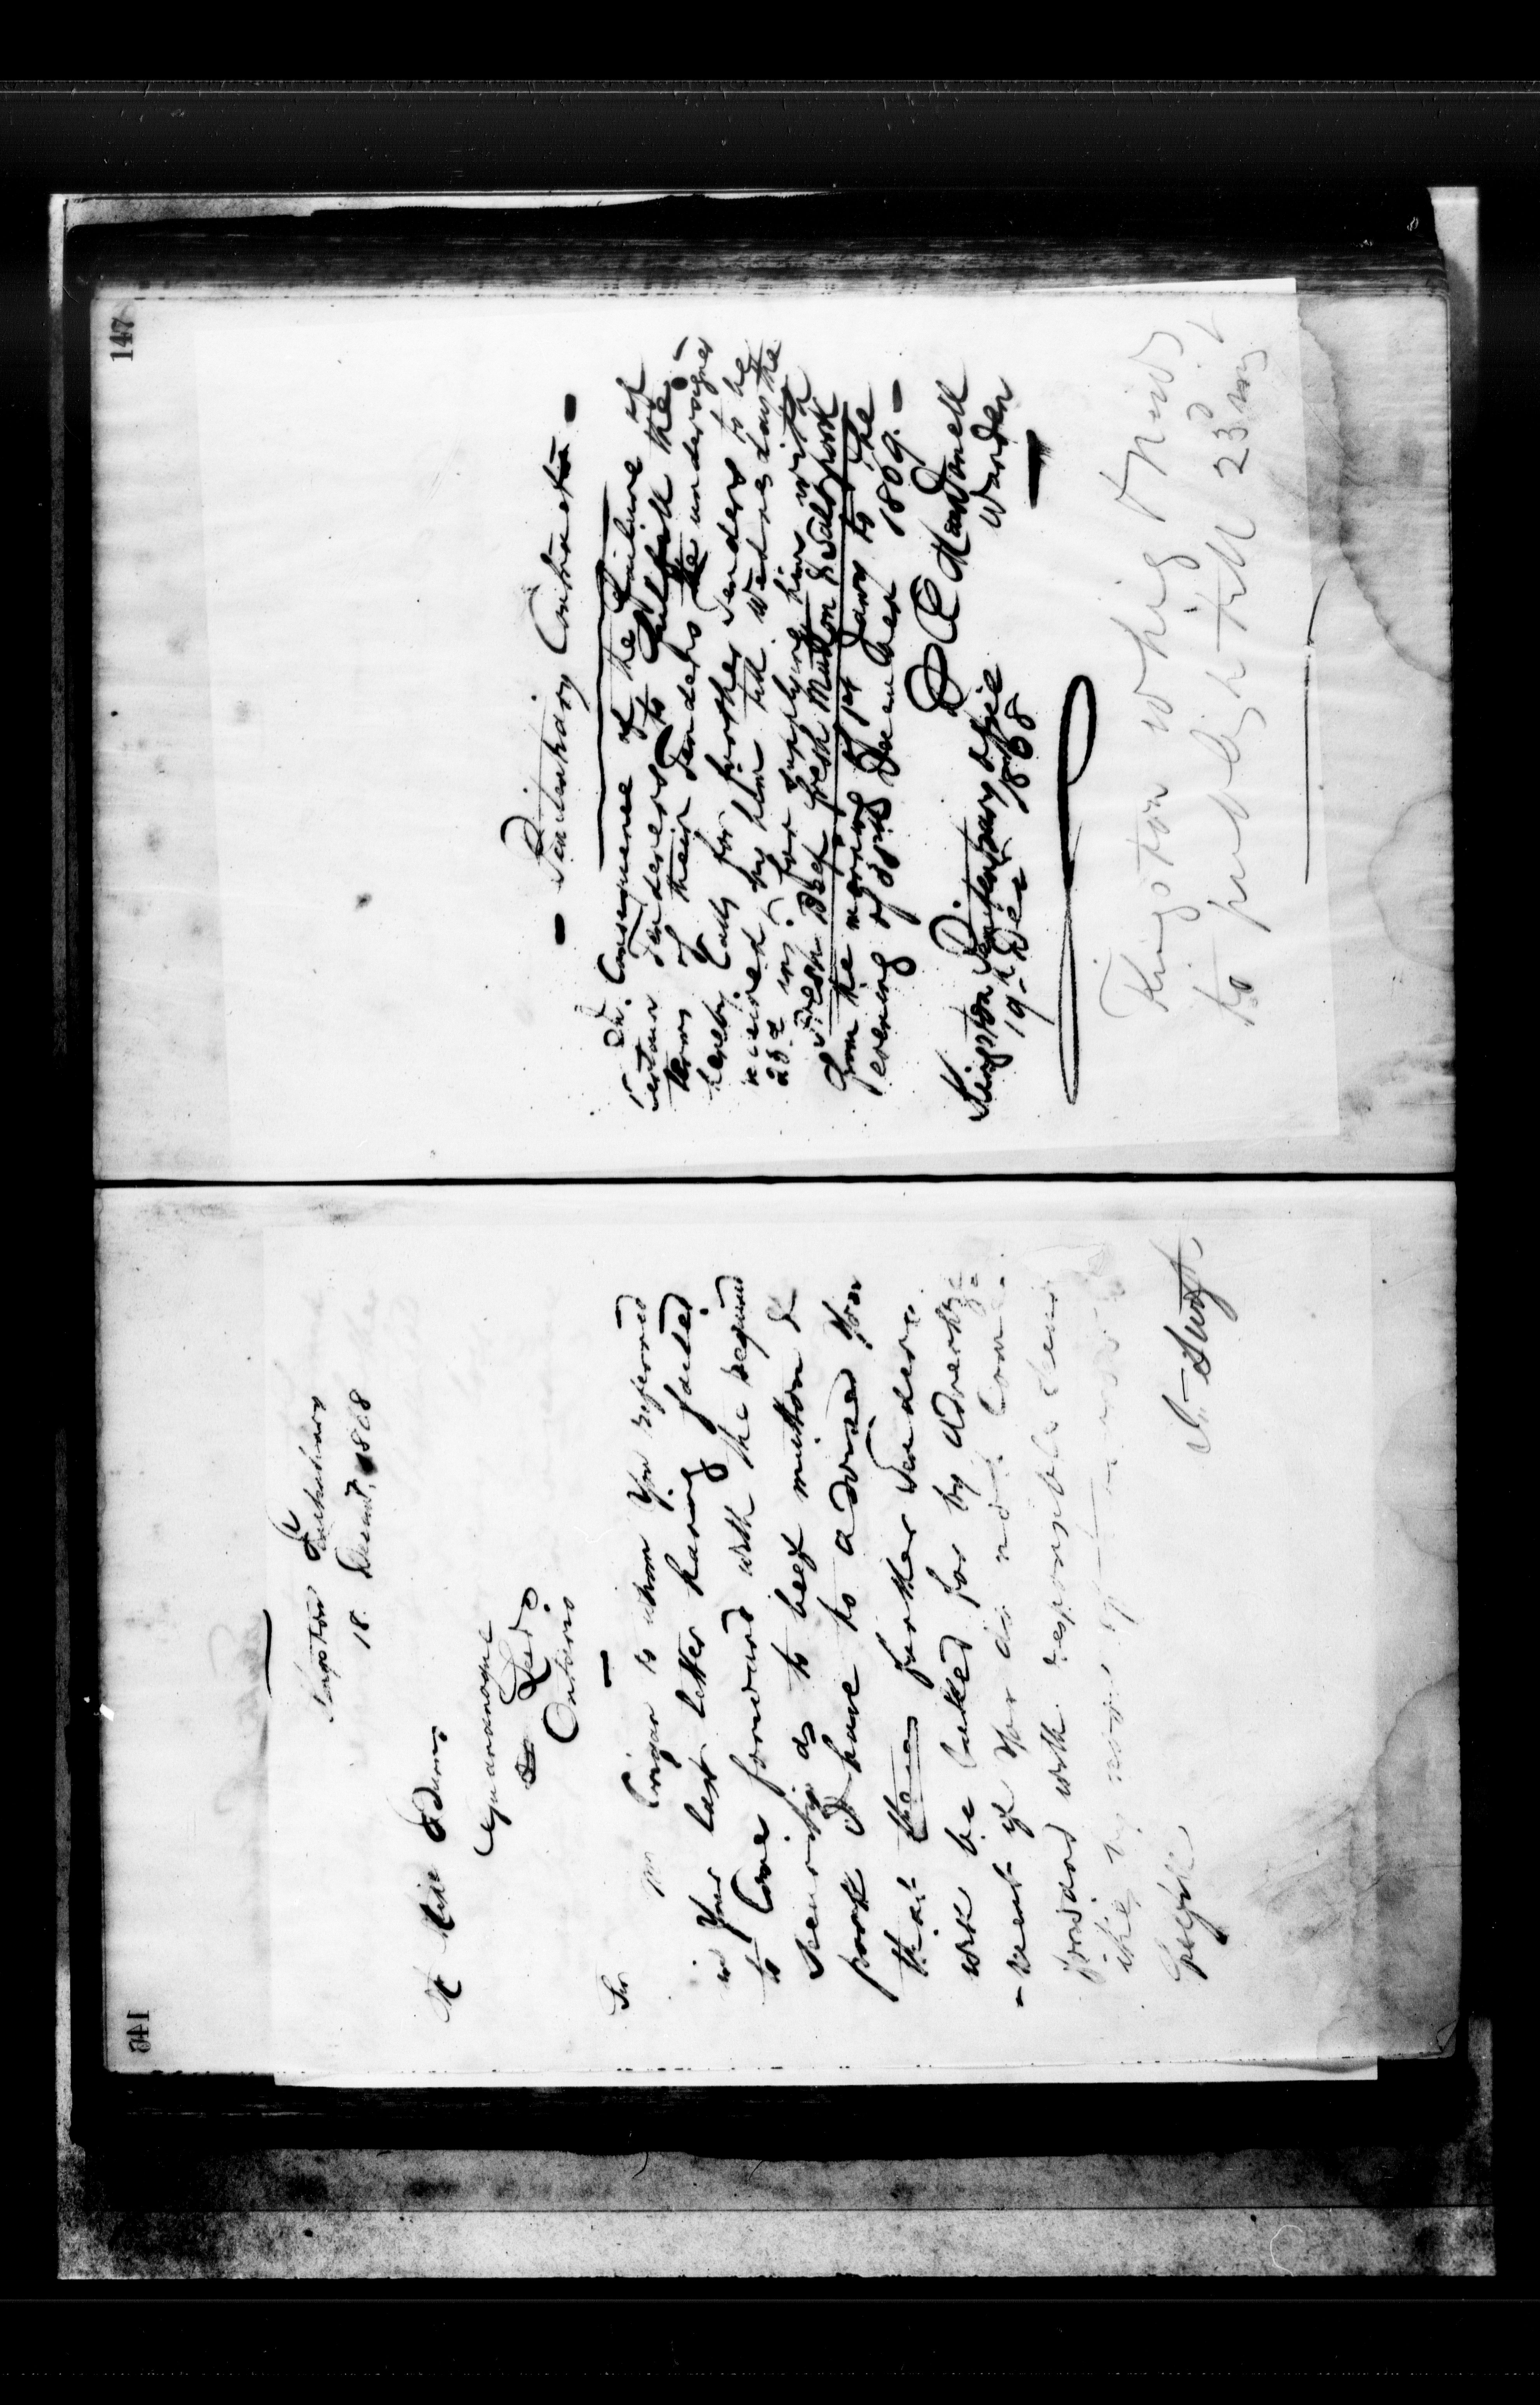 146
Kingston Penitentiary
18 Decemr. 1868
Gananoque
Co Leeds
Ontario
Sir
Mr Cougar to whom you referred
in your last letter having failed
to Come forward with the required
security as to beef mutton &
pork I have to advise you
that then further Tenders
will be asked for by advertise
- ment if you do not Come
forward with responsible
147
- Penitentiary Contracts -
In Consequence of the failure of
certain Tenderers to fulfill the
terms of their Tenders the undersigned
hereby Calls for further Tenders to be
received by him till Wednesday the
23d inst for supplying him with
Fresh Beef fresh Mutton & Salt pork
from the morning of 1st Jany to the
evening of 31st December 1869. -
D Æ MacDonell
Warden
Kingston Penitentiary office
19th Decr 1868
Kingston Whig & News
to publish till 23d